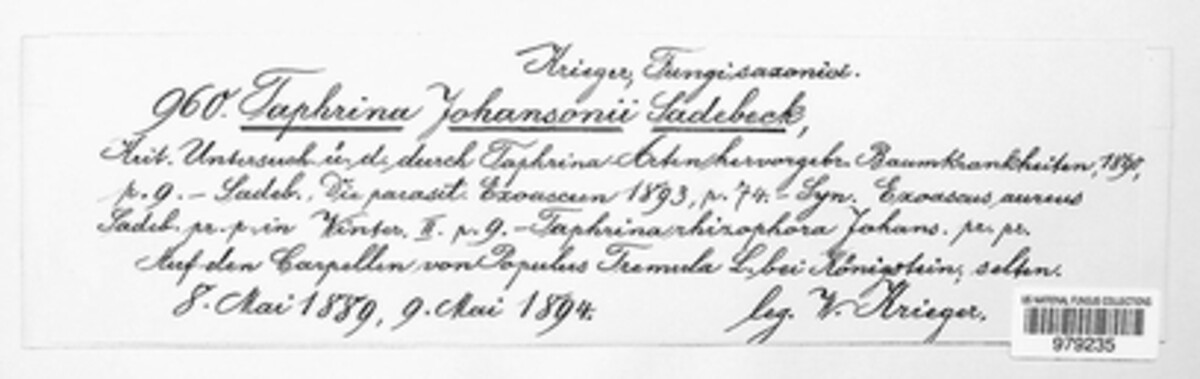 Krieger, Fungi saxonici.
960. Taphrina Johansonii Sadebeck,
Krit. Untersuch. ü. d. durch Taphrina-Arten hervorgebr. Baumkrankheiten, 1890,
p. 9. – Sadeb., Die parasit. Exoasceen 1893, p. 74. – Syn. Exoascus aureus
Sadeb. pr. p. in Winter. II. p. 9. – Taphrina rhizophora Johans. pr. pr.
Auf den Carpellen von Populus Tremula L. bei Königstein, selten.
8. Mai 1889, 9. Mai 1894.
leg. W. Krieger.
US NATIONAL FUNGUS COLLECTIONS
979235